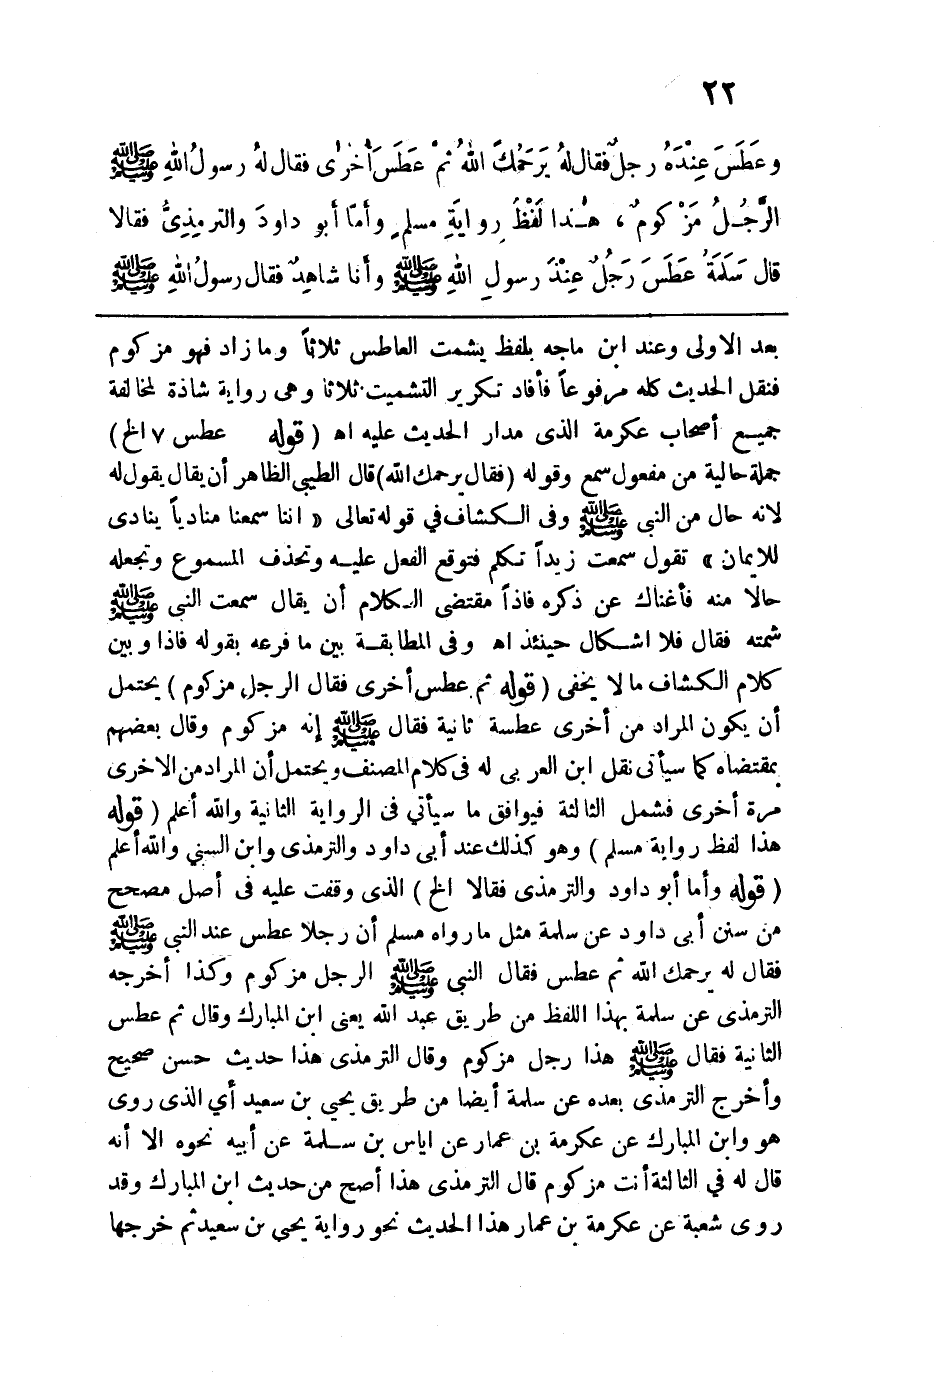 ٢٢
وعَطَسَ عِنْدَهُ رجلٌ فقال لهُ يَرحَمُكَ اللهُ ثمَّ عَطَسَ أخْرَى فقال لهُ رسولُ اللهِ ﷺ
الرَّجُـلُ مَزْكومٌ ، هـٰـذا لَفْظُ روايَةِ مسلمٍ وأمّا أبو داودَ والترمِذِيُّ فقالا
قال سَلَمَةُ عَطَسَ رَجُلٌ عِنْدَ رسولِ اللهِ ﷺ وأنا شاهِدٌ فقال رسولُ اللهِ ﷺ
بعد الاولى وعند ابن ماجه بلفظ يشمت العاطس ثلاثاً وما زاد فهو مزكوم
فنقل الحديث كله مرفوعاً فأفاد تكرير التشميت ثلاثا وهى رواية شاذة لمخالفة
جميـع أصحاب عكرمة الذى مدار الحديث عليه اه ( قوله عطس ٧ الخ )
جملة حالية من مفعول سمع وقوله (فقال يرحمك الله) قال الطيبي الظاهر أن يقال يقول له
لانه حال من النبي ﷺ وفى الـكشاف في قوله تعالى « اننا سمعنا منادياً ينادى
للايمان » تقول سمعت زيداً تكلم فتوقع الفعل عليـه وتحذف المسموع وتجعله
حالا منه فأغناك عن ذكره فاذاً مقتضى الـكلام أن يقال سمعت النبي ﷺ
شمته فقال فلا اشـكال حينئذ اه وفى المطابقـة بين ما فرعه بقوله فاذا وبين
كلام الـكشاف ما لا يخفى ( قوله ثم عطس أخرى فقال الرجل مزكوم ) يحتمل
أن يكون المراد من أخرى عطسة ثانية فقال ﷺ إنه مزكوم وقال بعضهم
بمقتضاه كما سيأتى نقل ابن العربى له فى كلام المصنف ويحتمل أن المراد من الاخرى
مرة أخرى فشمل الثالثة فيوافق ما سيأتي فى الرواية الثانية والله أعلم ( قوله
هذا لفظ رواية مسلم ) وهو كذلك عند أبى داود والترمذى وابن السني والله أعلم
( قوله وأما أبو داود والترمذى فقالا الخ ) الذى وقفت عليه فى أصل مصحح
من سنن أبى داود عن سلمة مثل ما رواه مسلم أن رجلا عطس عند النبي ﷺ
فقال له يرحمك الله ثم عطس فقال النبي ﷺ الرجل مزكوم وكذا أخرجه
الترمذى عن سلمة بهذا اللفظ من طريق عبد الله يعنى ابن المبارك وقال ثم عطس
الثانية فقال ﷺ هذا رجل مزكوم وقال الترمذى هذا حديث حسن صحيح
وأخرج الترمذى بعده عن سلمة أيضا من طريق يحيى بن سعيد أي الذى روى
هو وابن المبارك عن عكرمة بن عمار عن اياس بن سـلمة عن أبيه نحوه الا أنه
قال له في الثالثة أنت مزكوم قال الترمذى هذا أصح من حديث ابن المبارك وقد
روى شعبة عن عكرمة بن عمار هذا الحديث نحو رواية يحيى بن سعيد ثم خرجها